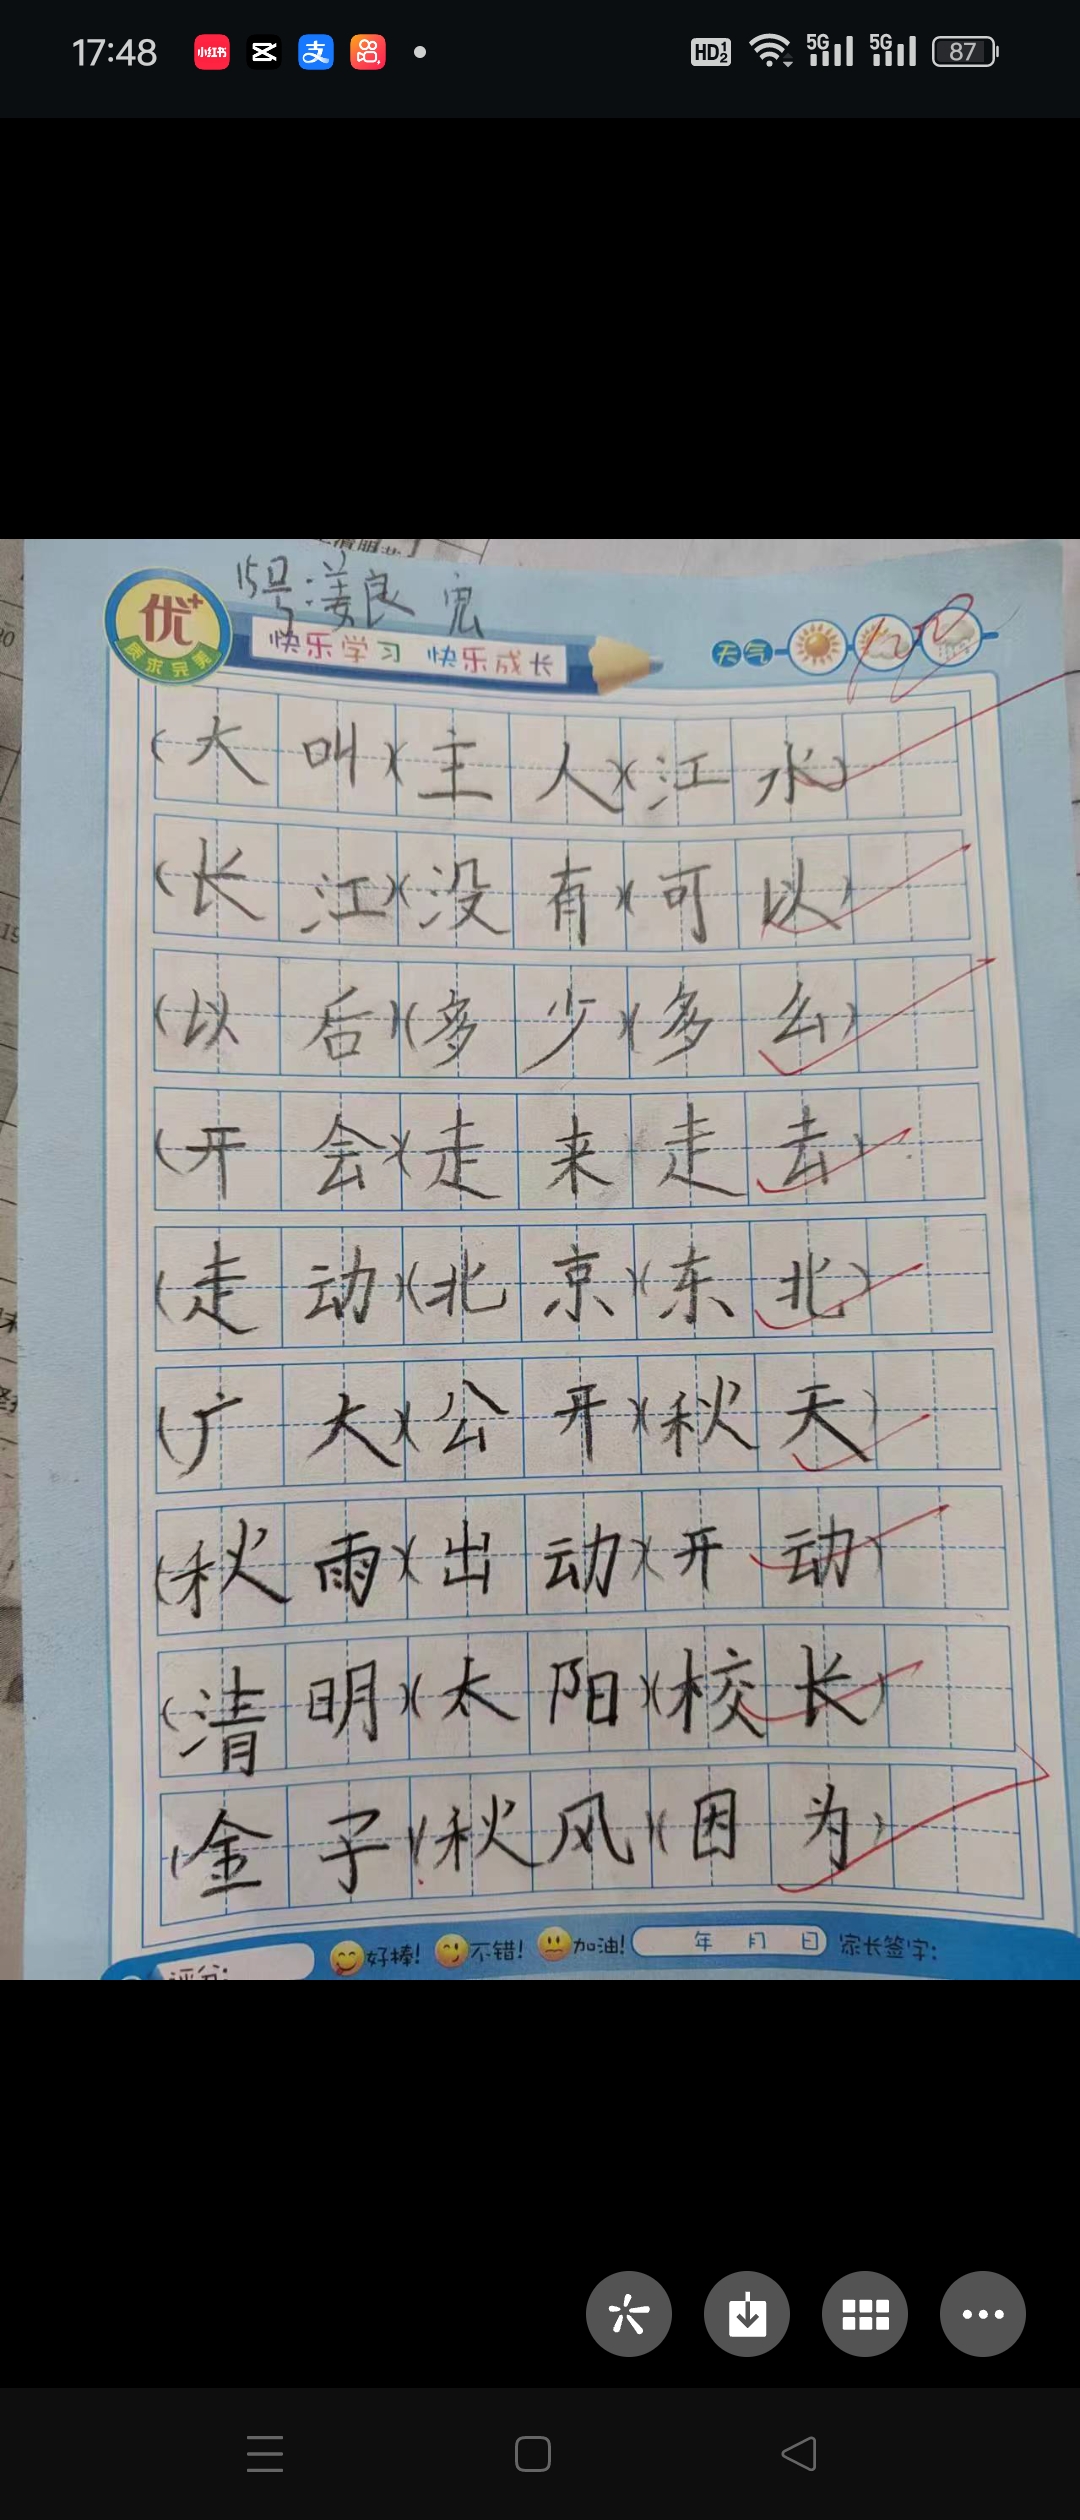 17:48 小红书 支 HD 1 2 5G 5G 87
15号:姜良
优+
质求完美
快乐学习 快乐成长
天气
100
(大叫)(主人)(江水)
(长江)(没有)(可以)
(以后)(多少)(多么)
(开会)(走来 走去)
(走动)(北京)(东北)
(广大)(公开)(秋天)
(秋雨)(出动)(开动)
(清明)(太阳)(校长)
(金子)(秋风)(因为)
评分: 好棒! 不错! 加油! 年 月 日 家长签字: